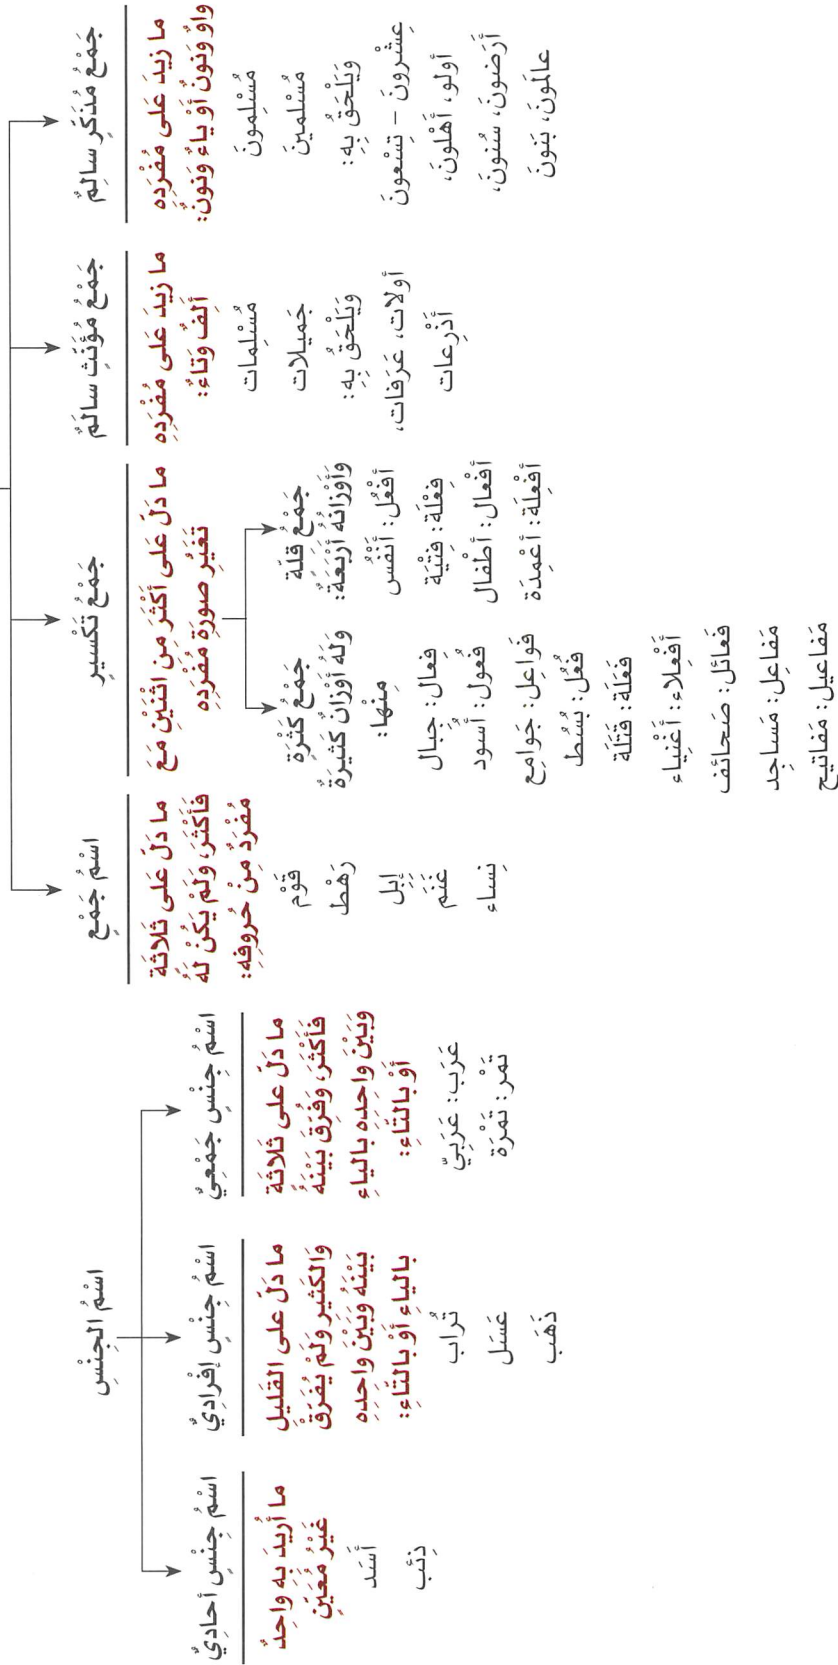 جَمْعُ مُذَكَّرٍ سالِمٌ
ما زيدَ عَلى مُفْرَدِهِ
واوٌ وَنونٌ أَوْ ياءٌ وَنونٌ:
مُسْلِمونَ
مُسْلِمينَ
وَيَلْحَقُ بِهِ:
عِشْرونَ - تِسْعونَ
أولو، أَهْلونَ،
أَرَضونَ، سُنونَ،
عالَمونَ، بَنونَ
جَمْعُ مُؤَنَّثٍ سالِمٌ
ما زيدَ عَلى مُفْرَدِهِ
أَلِفٌ وَتاءٌ:
مُسْلِمات
جَميلات
وَيَلْحَقُ بِهِ:
أولات، عَرَفات،
أَذْرِعات
جَمْعُ تَكْسيرٍ
ما دَلَّ عَلى أَكْثَرَ مِنِ اثْنَيْنِ مَعَ
تَغَيُّرِ صورَةِ مُفْرَدِهِ
جَمْعُ قِلَّة
وَأَوْزانُهُ أَرْبَعَةٌ:
أَفْعُل: أَنْفُس
فِعْلَة: فِتْيَة
أَفْعال: أَطْفال
أَفْعِلَة: أَعْمِدَة
جَمْعُ كَثْرَة
وَلَهُ أَوْزانٌ كَثيرَةٌ
مِنْها:
فِعال: جِبال
فُعول: أُسود
فَواعِل: جَوامِع
فُعُل: بُسُط
فَعَلَة: قَتَلَة
أَفْعِلاء: أَغْنِياء
فَعائل: صَحائف
مَفاعِل: مَساجِد
مَفاعيل: مَفاتيح
اسْمُ جَمْعٍ
ما دَلَّ عَلى ثَلاثَة
فَأَكْثَرَ، وَلَمْ يَكُنْ لَهُ
مُفْرَدٌ مِنْ حُروفِهِ:
قَوْم
رَهْط
إِبِل
غَنَم
نِساء
اسْمُ الجِنْسِ
اسْمُ جِنْسٍ جَمْعِيٌّ
ما دَلَّ عَلى ثَلاثَة
فَأَكْثَرَ، وَفُرِّقَ بَيْنَهُ
وَبَيْنَ واحِدِهِ بِالياءِ
أَوْ بِالتّاءِ:
عَرَب: عَرَبِيّ
تَمْر: تَمْرَة
اسْمُ جِنْسٍ إِفْرادِيٌّ
ما دَلَّ عَلى القَليلِ
وَالكَثيرِ وَلَمْ يُفَرَّقْ
بَيْنَهُ وَبَيْنَ واحِدِهِ
بِالياءِ أَوْ بِالتّاءِ:
تُراب
عَسَل
ذَهَب
اسْمُ جِنْسٍ أحادِيٌّ
ما أُريدَ بِهِ واحِدٌ
غَيْرُ مُعَيَّنٍ
أَسَد
ذِئب